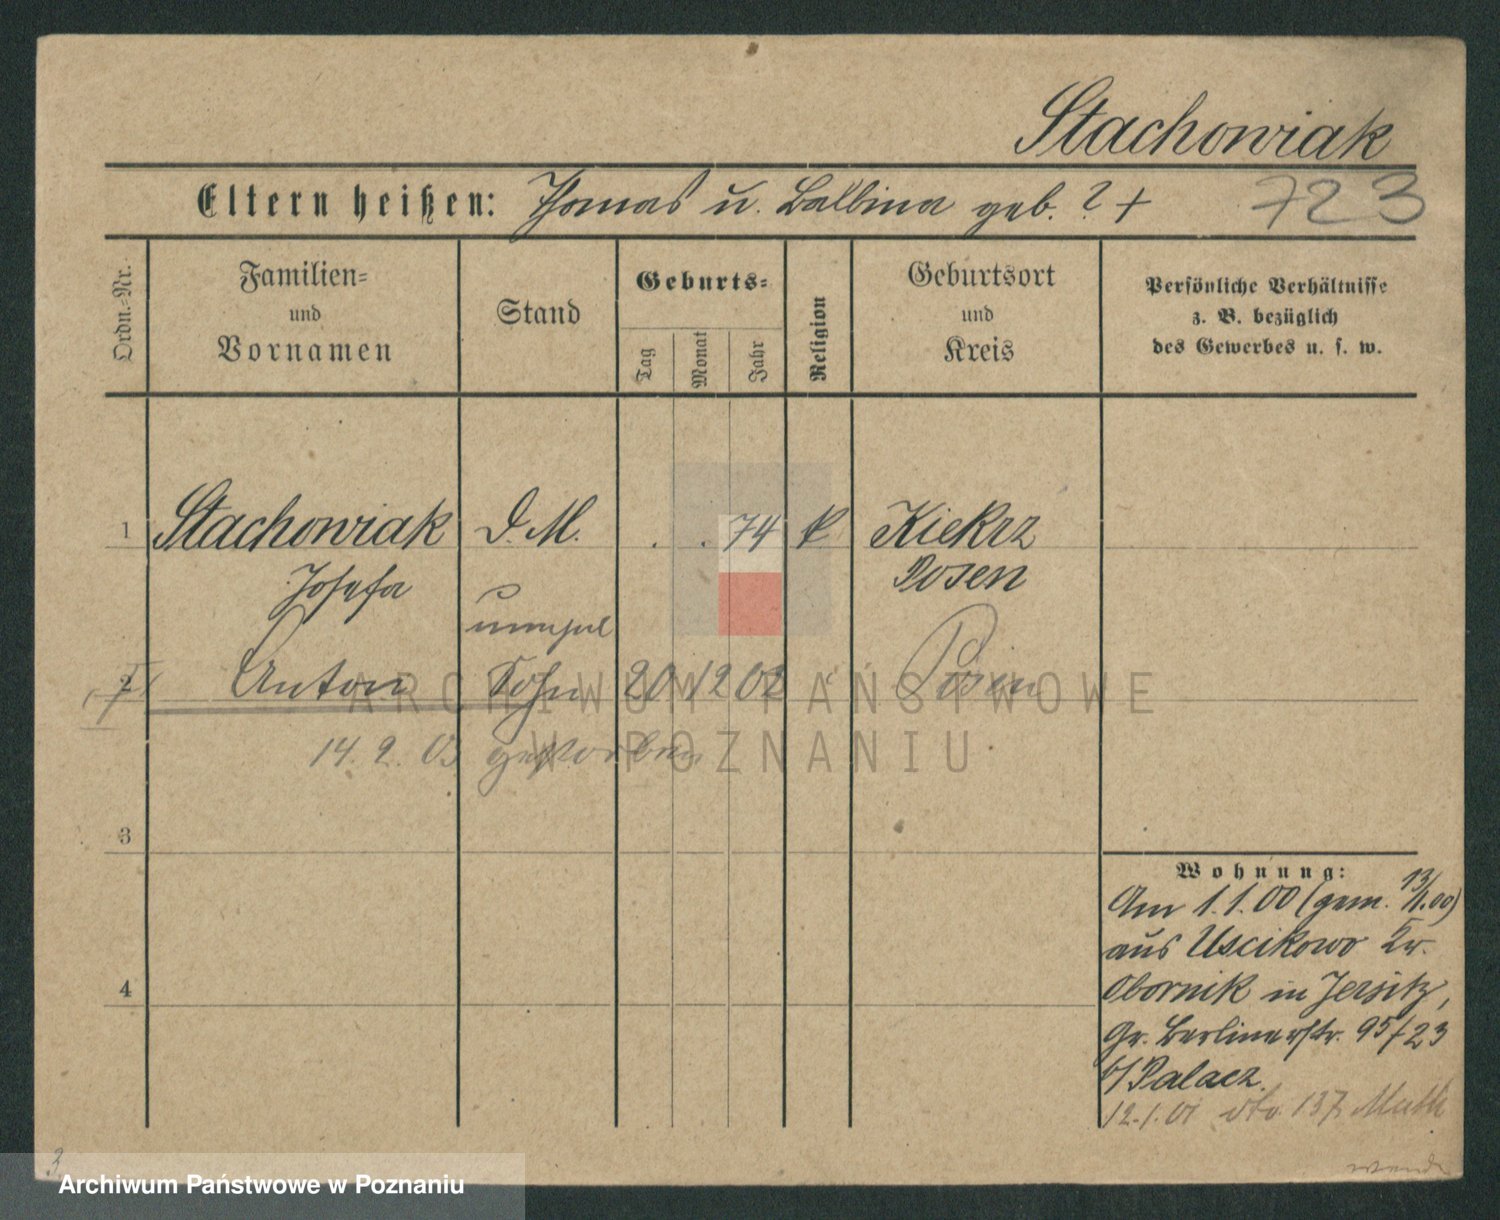 Stachowiak
Eltern heißen: Thomas u. Balbina geb. ? + 723
Ordn.-Nr.
Familien-
und
Vornamen
Stand
Geburts-
Tag
Monat
Jahr
Religion
Geburtsort
und
Kreis
Persönliche Verhältnisse
z. B. bezüglich
des Gewerbes u. s. w.
1 Stachowiak D. M. . . 74 k Kiekrz
Josefa Posen
2 Anton Sohn 20 12 02 Posen
14. 2. 03 gestorben
3
4
Wohnung:
Am 1.1.00 (gem. 13/1.00)
aus Uscikowo Kr.
Obornik in Jersitz,
Gr. Berlinerstr. 95/23
b/ Palacz.
12.1.01 dto. 137
3.
ARCHIWUM PAŃSTWOWE
W POZNANIU
Archiwum Państwowe w Poznaniu